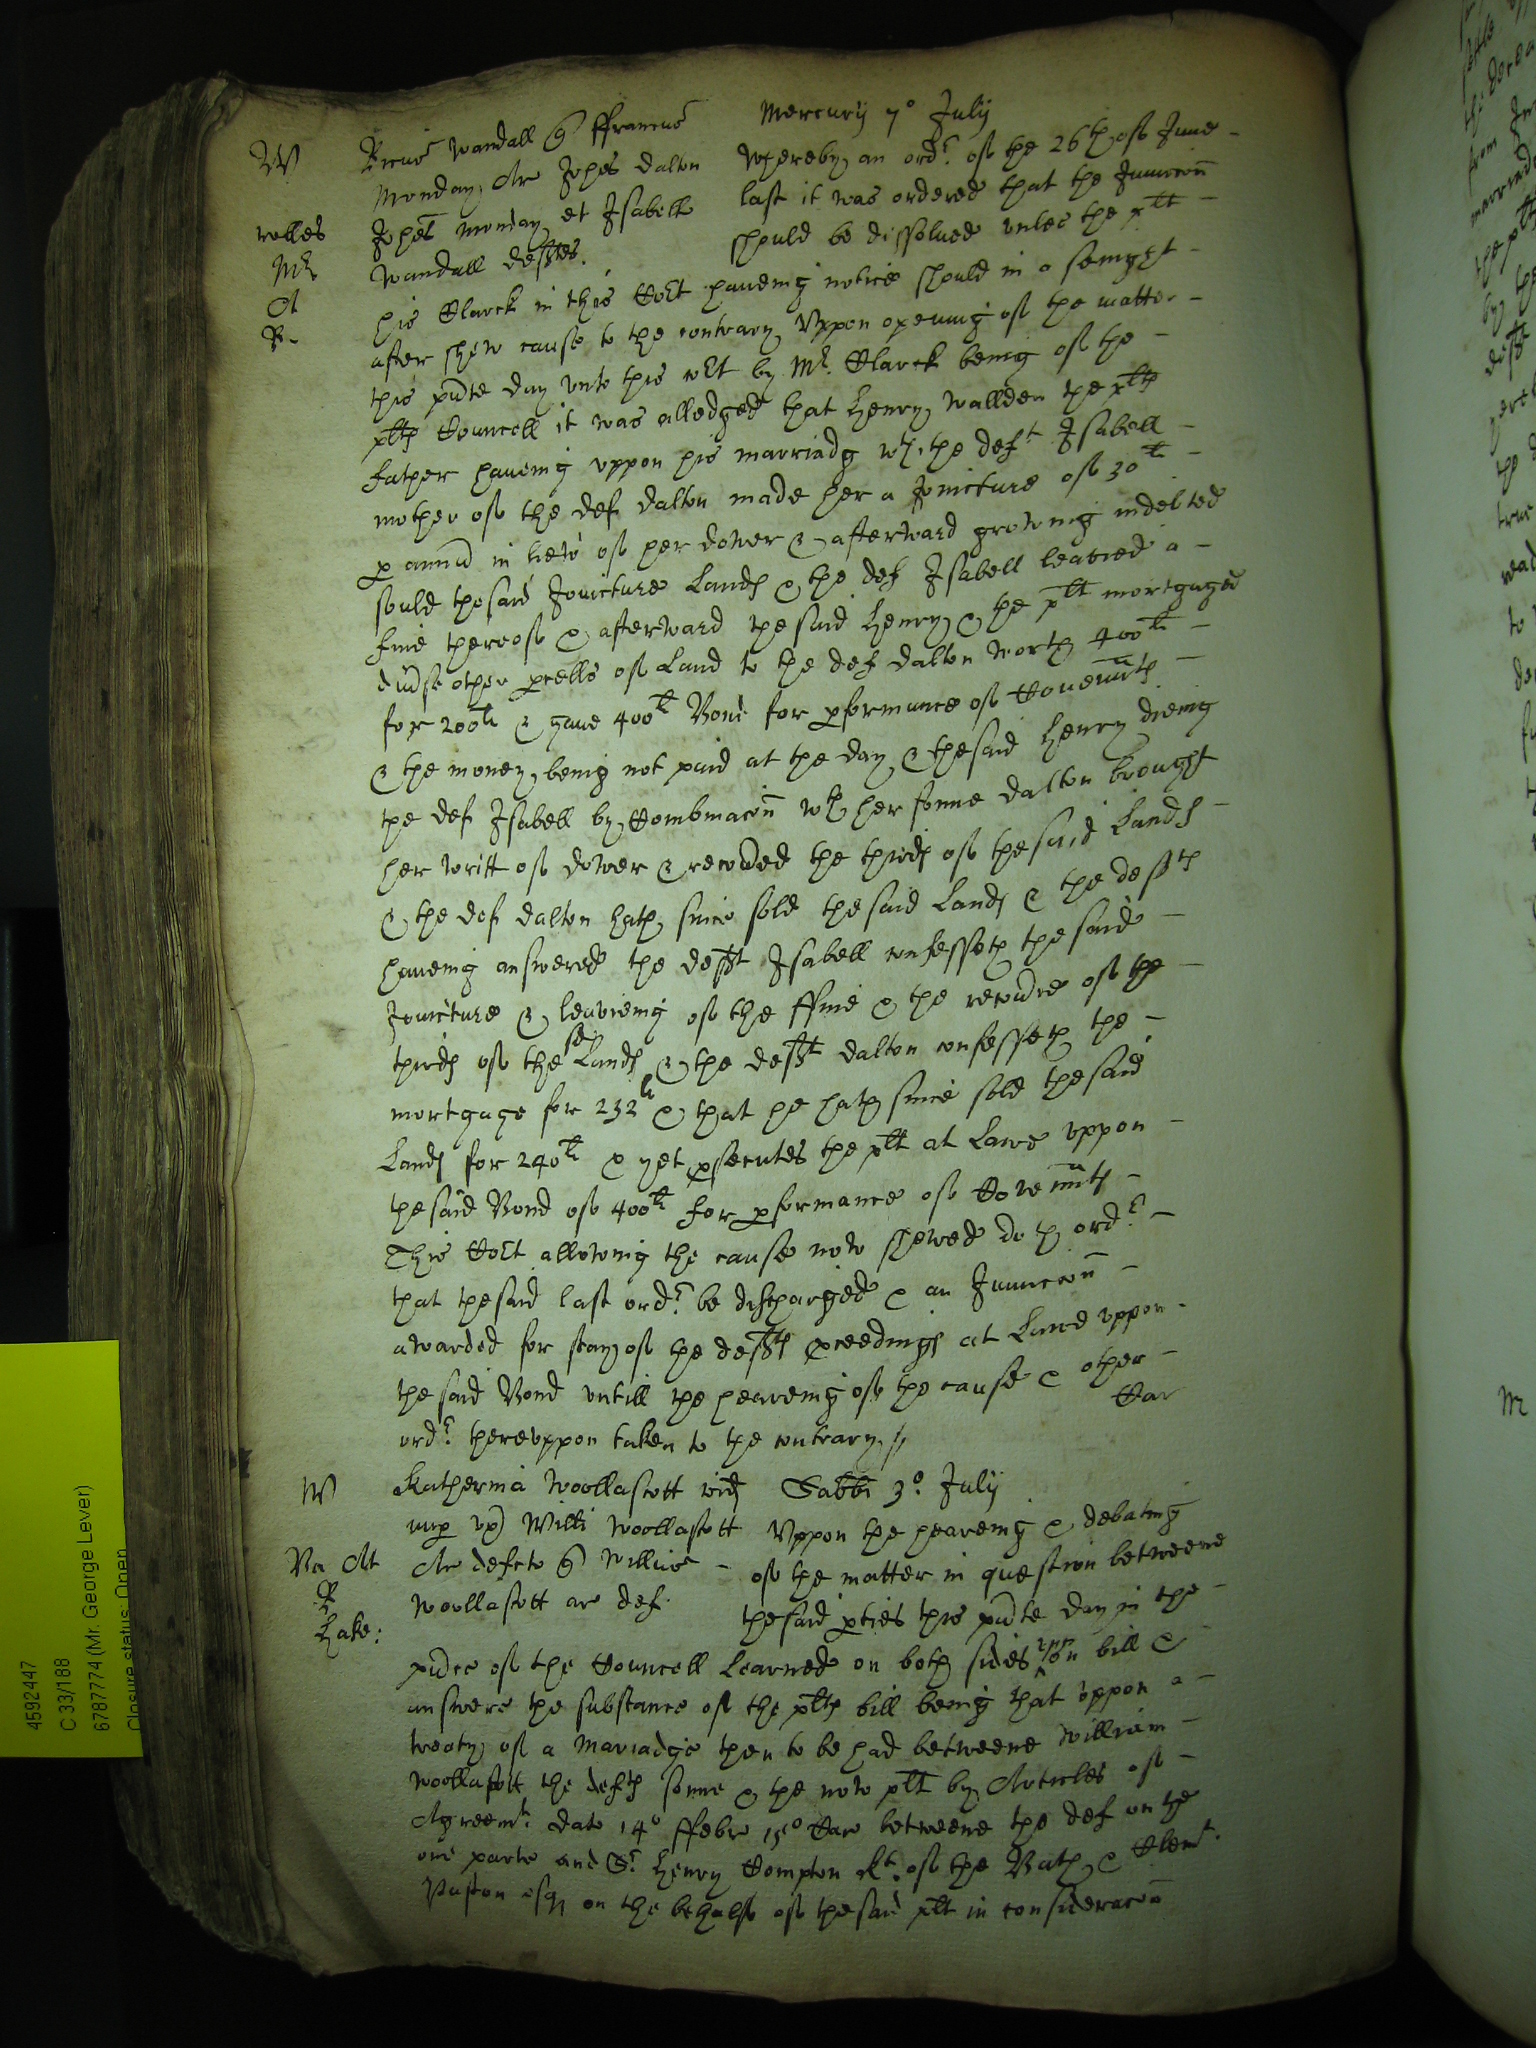 Mercurij 7° Julij
W Ricus Wandall q ffrancus
Monday Ar Johes Dalton Whereby an ordr of the 26th of June
rolles Johes Monday et Isabell last it was ordered that the Iniunccon
Mr Wandall deftes. should be dissolued vnles the plt
A his Clarck in this Cort haueing notice should in a senight
R after shew cause to the contrary Vppon opening of the matter
this pnte day vnto this cort by Mr. Clarck being of the
plts Councell it was alledged that Henry Wallden the plts
father haueing vppon his marriadg wth the deft Isabell
mother of the def Dalton made her a Joincture of 30li
p annu in liew of her dower & afterward growing indebted
sould the said Joincture Lands & the def Isabell leavied a
fine thereof & afterward the said Henry & the plt mortgaged
diuse other pcells of Land to the def Dalton worth 400li
for 200li & gaue 400li Bond for pformance of Couennts
& the money being not paid at the day & the said Henry dieing
the def Isabell by Combinacon wth her sonne Dalton brought
her writt of dower & recoued the thirds of the said Lands
& the def Dalton hath since sold the said Lands & the defts
haueing answered the deft Isabell confesseth the said
Joincture & leavieing of the ffine & the recouie of the
thirds of the se Lands & the deft Dalton confesseth the
mortgage for 232li & that he hath since sold the said
Lands for 240li & yet psecutes the plt at Lawe vppon
the said Bond of 400li for pformance of Covennts
This Cort allowing the cause now shewed doth ordr
that the said last ordr be discharged & an Iniunccon
awarded for stay of the defts pceedings at Lawe vppon
the said Bond vntill the heareing of the cause & other
ordr therevppon taken to the contrary // Car
W Katherina Woollascott wid Sabbi 3° Julij
nup vx Willi Woollascott Vppon the heareing & debating
Ar defcto q Willus of the matter in question betweene
Woollascott ar def. the said pties this pnte day in the
Hake:
pnce of the Councell Learned on both sides vppon bill &
answere the substance of the plts bill being that vppon a
treaty of a Mariadge then to be had betweene William
Woollascott the defts sonne & the now plt by Articles of
Agreemt. dat 14° ffebr 15° Car betweene the def on the
one parte and Sr Henry Compton Kt. of the Bath & Clemt.
Paston esq on the behalfe of the said plt in consideracon
4592447
C 33/188
6787774 (Mr. George Lever)
Closure status: Open